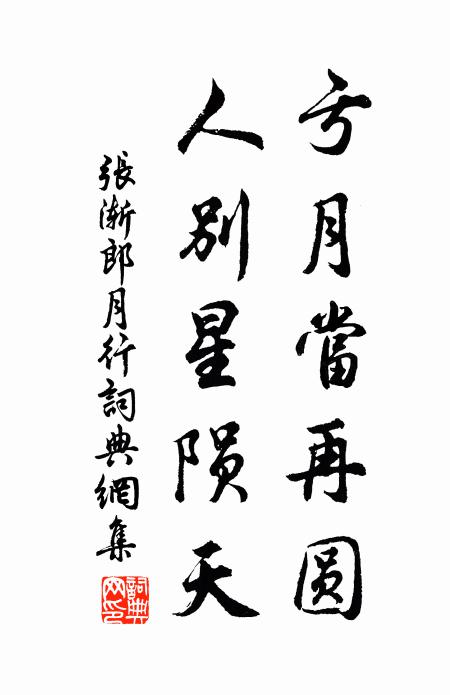 亏月當再圆
人别星陨天
張漸郎月行詞典網集
詞典網印